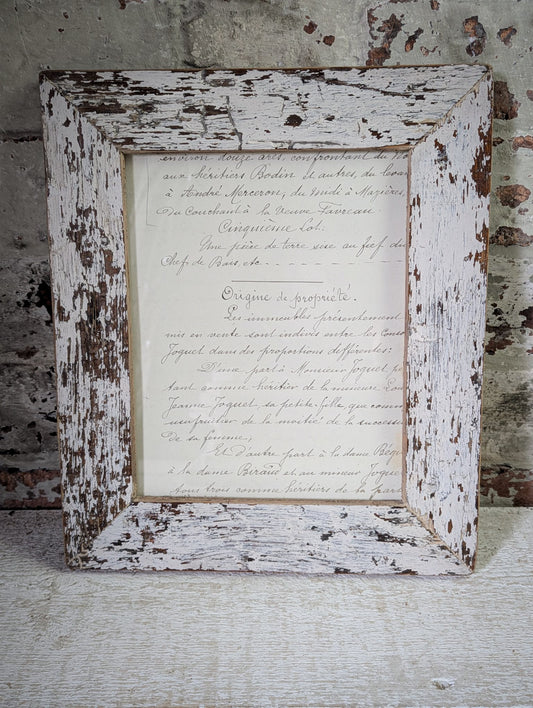 environ douze ares, confrontant du No
aux héritiers Bodin et autres, du Levan
à André Merceron, du midi à Mazières,
du Couchant à la Veuve Favreau
Cinquième Lot:
Une pièce de terre sise au fief du
Chef de Bois, etc
Origine de propriété.
Les immeubles présentement
mis en vente sont indivis entre les Conso
Joguet dans des proportions différentes:
D'une part à Monsieur Joguet p
tant comme héritier de la mineure Lou
Jeanne Joguet, sa petite fille, que comm
usufruitier de la moitié de la success
de sa femme;
Et d'autre part à la dame Bég
à la dame Biraud et au mineur Jogue
tous trois comme héritiers de la gra